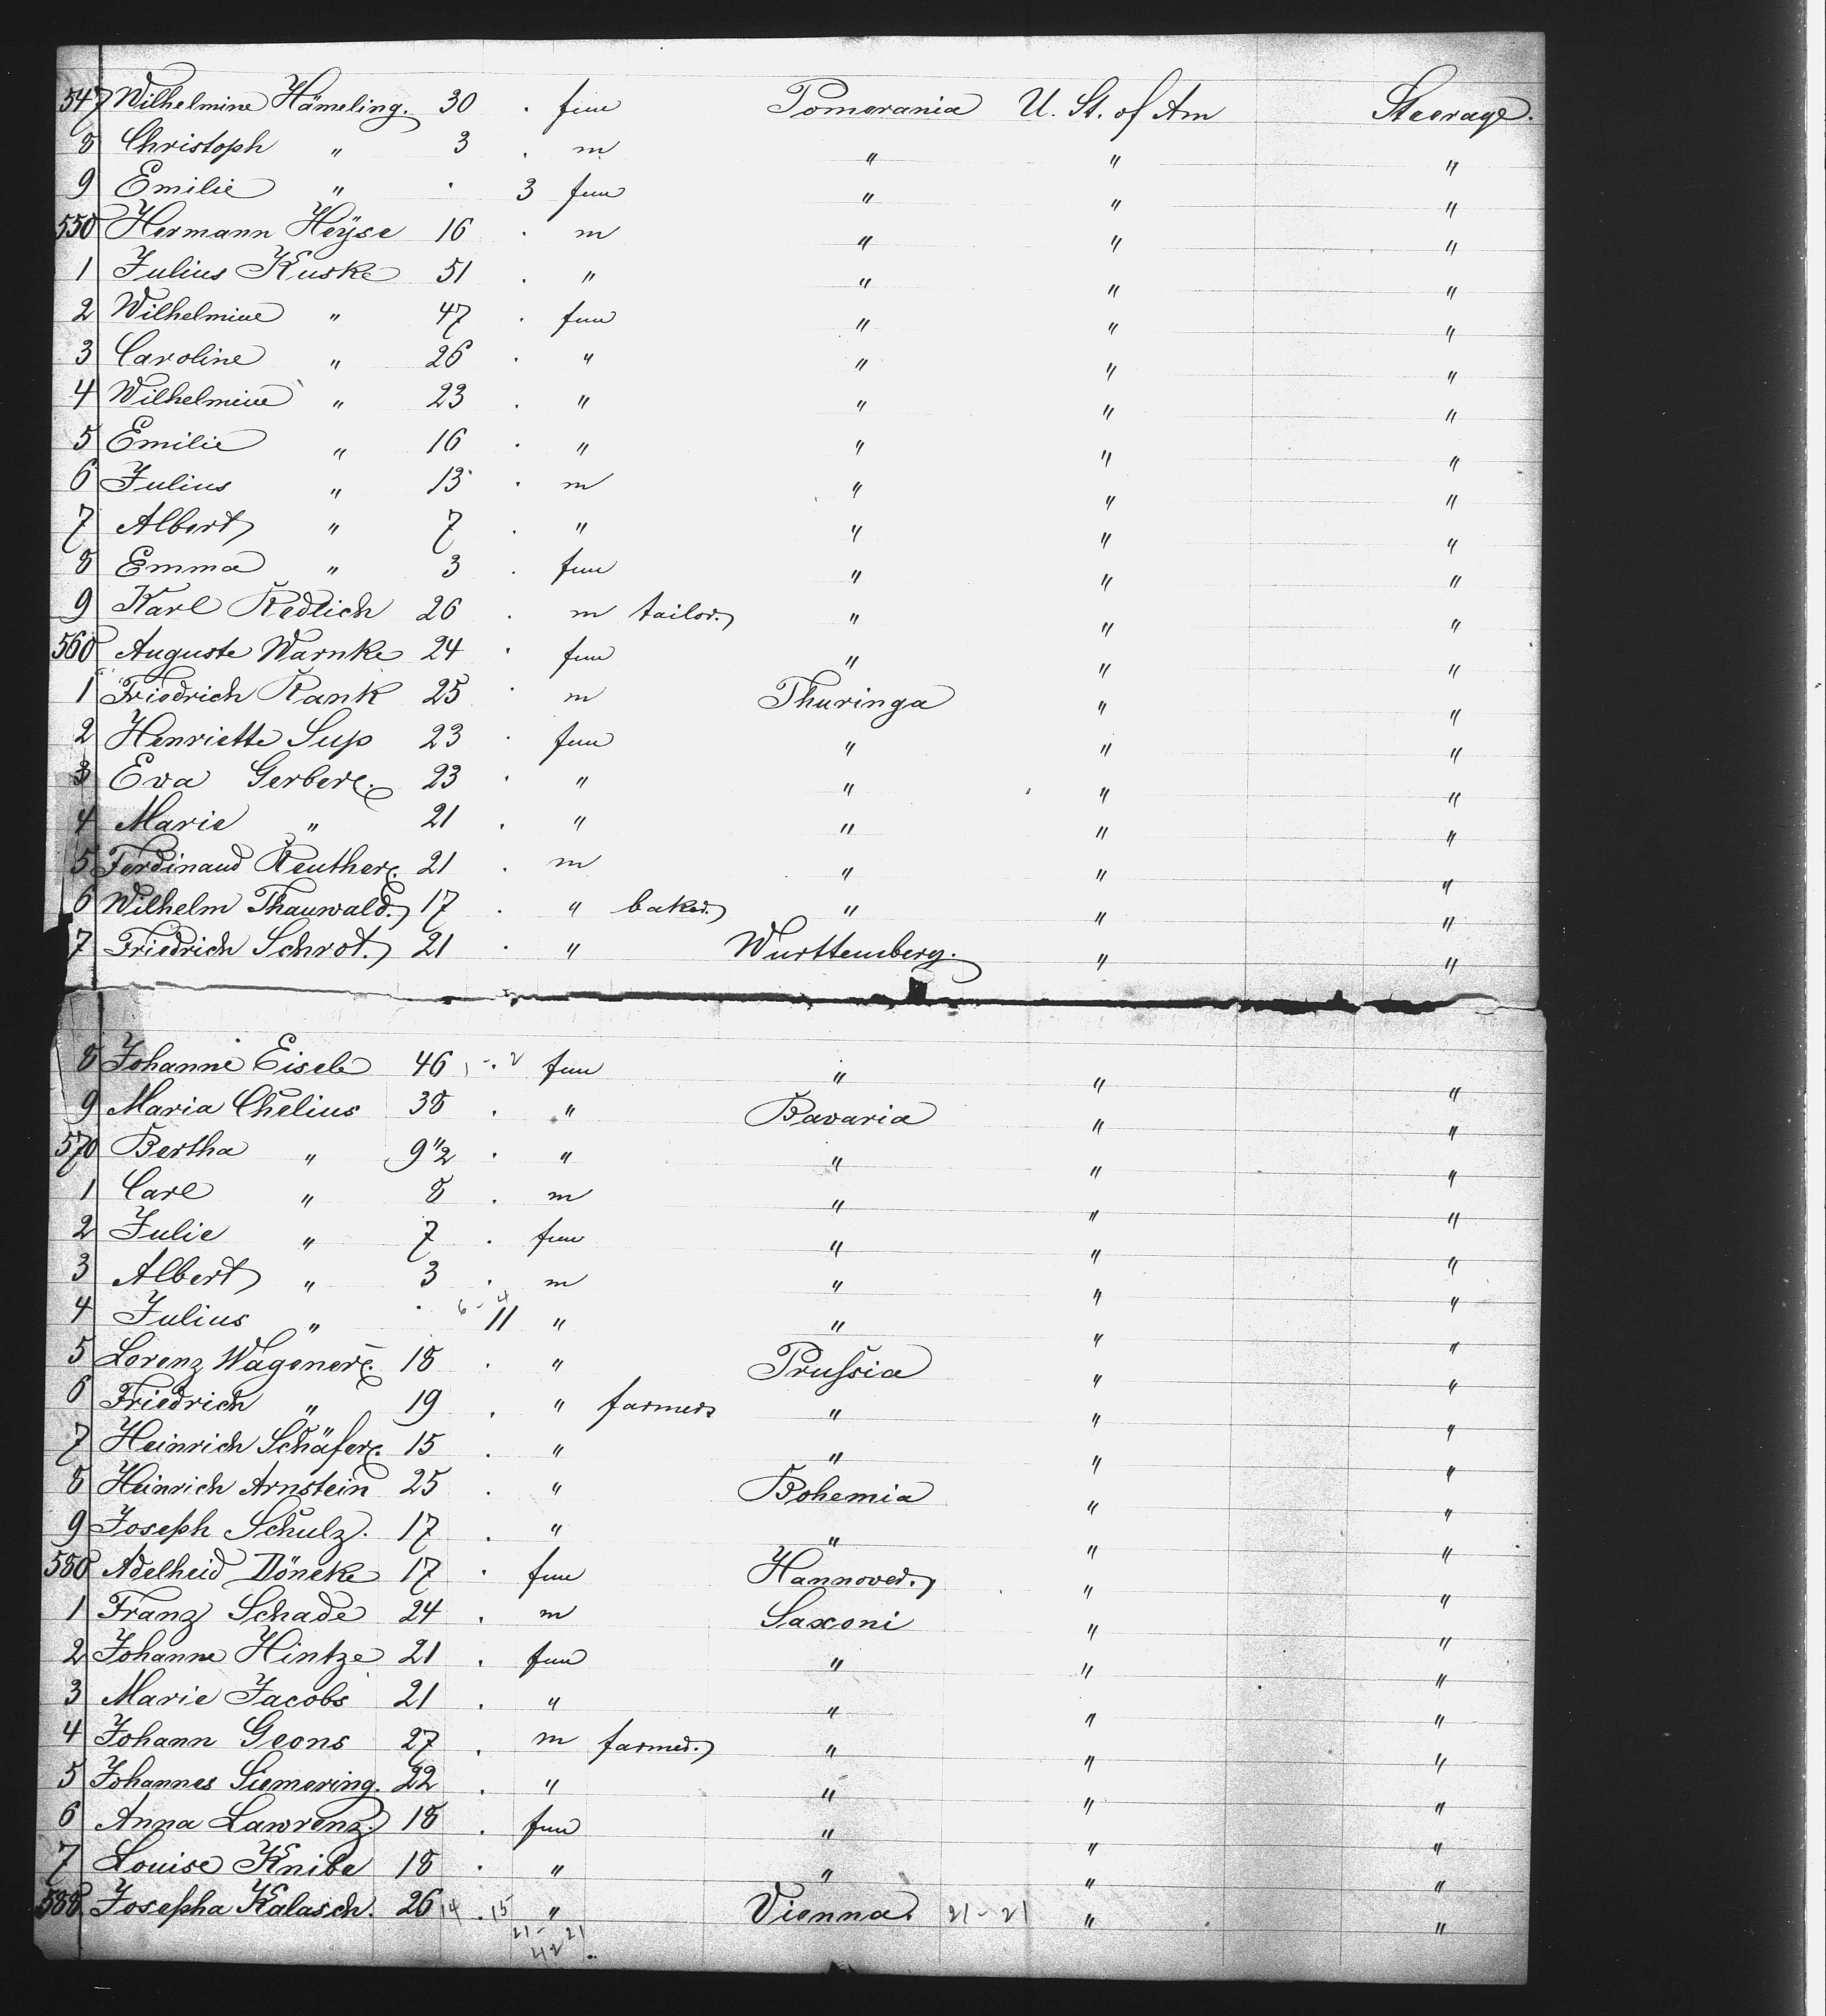 547 Wilhelmine Hämeling. 30 . fem Pomerania U. St. of Am Steerage.
8 Christoph " 3 . m " " "
9 Emilie " . 3 fem " " "
550 Hermann Heÿse 16 . m " " "
1 Julius Kuske 51 . " " " "
2 Wilhelmine " 47 . fem " " "
3 Caroline " 26 . " " " "
4 Wilhelmine " 23 . " " " "
5 Emilie " 16 . " " " "
6 Julius " 13 . m " " "
7 Albert " 7 . " " " "
8 Emma " 3 . fem " " "
9 Karl Redlich 26 . m tailor. " " "
560 Auguste Warnke 24 . fem " " "
1 Friedrich Rank 25 . m Thuringa " "
2 Henriette Sup 23 . fem " " "
3 Eva Gerber. 23 . " " " "
4 Marie " 21 . " " " "
5 Ferdinand Reuther. 21 . m " " "
6 Wilhelm Thauwald. 17 . " baker. " " "
7 Friedrich Schrot. 21 . " Wurttemberg. " "
8 Johanne Eisele 46 - . 2 fem " " "
9 Maria Chelius 38 . " Bavaria " "
570 Bertha " 9 1/2 . " " " "
1 Carl " 8 . m " " "
2 Julie " 7 . fem " " "
3 Albert " 3 . m " " "
4 Julius " . 6 - 4 11 " " " "
5 Lorenz Wagener. 18 . " Prussia " "
6 Friedrich " 19 . " farmers " " "
7 Heinrich Schäfer. 15 . " " " "
8 Heinrich Arnstein 25 . " Bohemia " "
9 Joseph Schulz. 17 . " " " "
580 Adelheid Döneke 17 . fem Hannover. " "
1 Franz Schade 24 . m Saxoni " "
2 Johanne Hintze 21 . fem " " "
3 Marie Jacobs 21 . " " " "
4 Johann Geons 27 . m farmer. " " "
5 Johannes Siemering. 22 . " " " "
6 Anna Lawrenz. 18 . fem " " "
7 Louise Knibe 18 . " " " "
588 Josepha Kalasch. 26 14 . 15 " Vienna. 21 - 21 " "
21 - 21
42